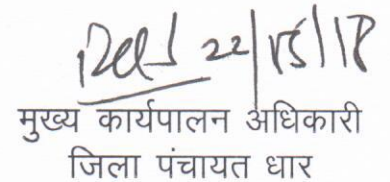 22/15/18
मुख्य कार्यपालन अधिकारी
जिला पंचायत धार